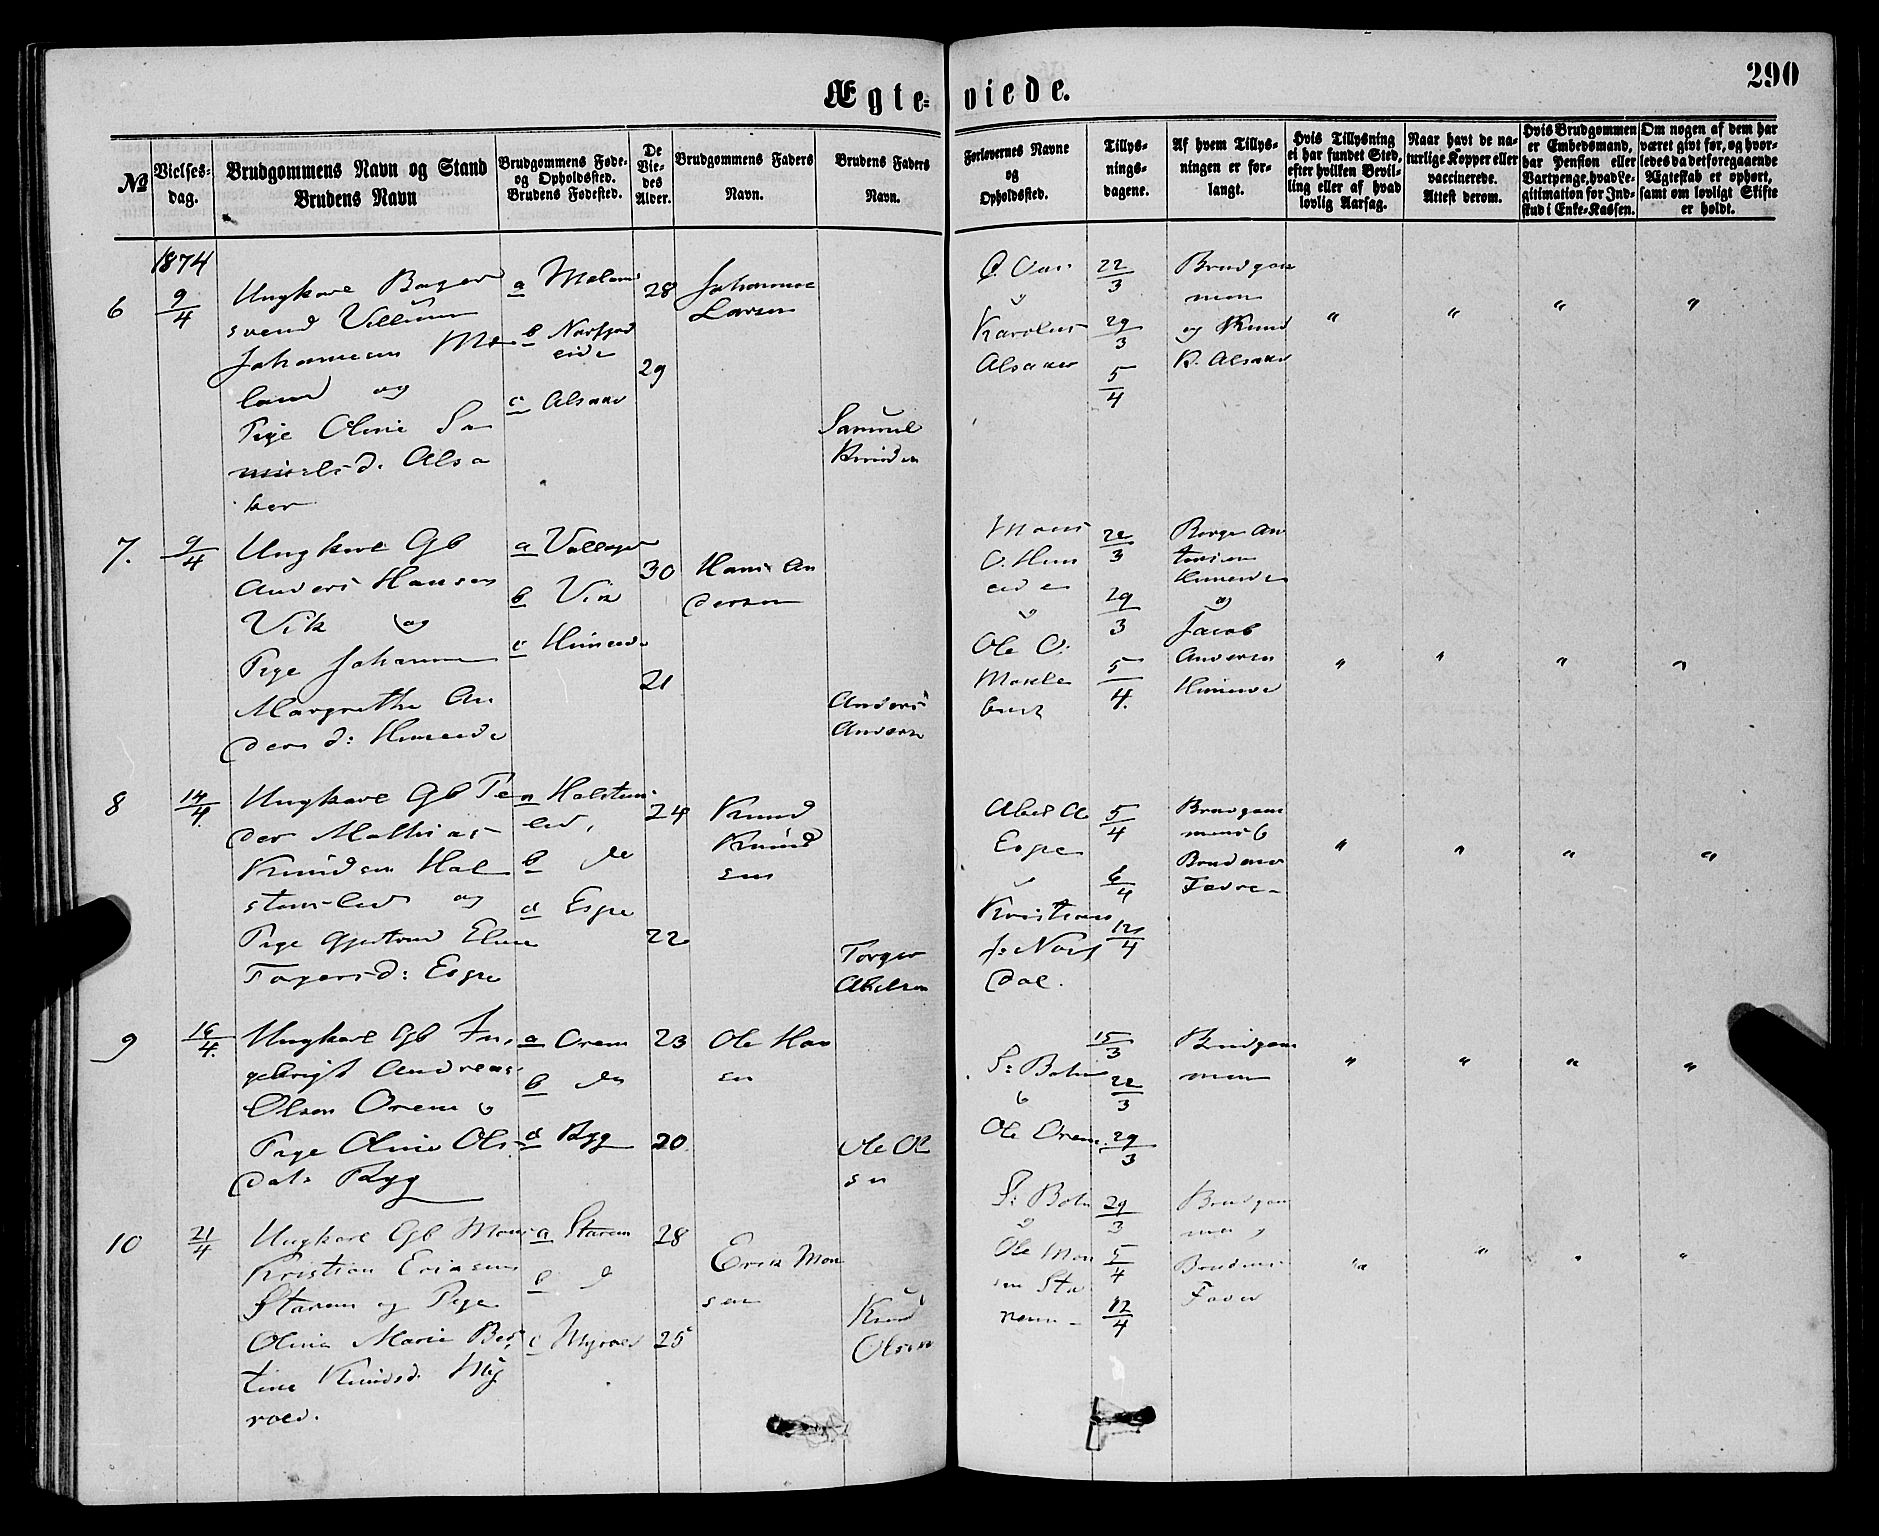 Ægte-viede.
290
№
Vielses-
dag.
Brudgommens Navn og Stand
Brudens Navn
Brudgommens Føde-
og Opholdssted.
Brudens Fødested.
De
Vie-
des
Alder.
Brudgommens Faders
Navn.
Brudens Faders
Navn.
Forlovernes Navne
og
Opholdssted.
Tillys-
nings-
dagene.
Af hvem Tillys-
ningen er for-
langt.
Hvis Tillysning
ei har fundet Sted,
efter hvilken Bevil-
ling eller af hvad
lovlig Aarsag.
Naar havt de na-
turlige Kopper eller
vaccinerede.
Attest derom.
Hvis Brudgommen
er Embedsmand,
har Pension eller
Vartpenge, hvad Le-
gitimation for Ind-
skud i Enke-Kassen.
Om nogen af dem har
været givt før, og hvor-
ledes da det foregaaende
Ægteskab er ophørt,
samt om lovligt Skifte
er holdt.
1874
6
9/4
Ungkarl Bager
svend Villum
Johannesen Me
land og
Pige Oline Sa
muelsd. Alsa
ker
a Meland
b Nordfjord
eide
c Alsaker
28
29
Johannes
Larsen
Samuel
Knudsen
Karolus
Alsaker
22/3
29/3
5/4
Brudgom
men
og Knud
K. Alsaker
" " " "
7.
9/4
Ungkarl Gb
Anders Hansen
Vik og
Pige Johanne
Margrethe An
dersd: Humeide
a
b Vik
c Humeide
30
21
Hans An
dersen
Anders
Andersen
Mons
O. Hum
eide
&
Ole O.
Mækle
bust
22/3
29/3
5/4.
Børge An
dersen
Humeide
og
Jacob
Andersen
Humeide
" " " "
8
14/4
Ungkarl Gb Pe
der Mathias
Knudsen Hal
stenslid og
Pige Gjertrud Eline
Torgersd: Espe
a Halstens
lid,
b do
d Espe
24
22
Knud
Knud
sen
Torger
Abelsen
Abel A
Espe
&
Kristian
J: Nord
dal.
5/4
6/4
12/4
Brudgom
men &
Brudens
Fader
" " " "
9
16/4.
Ungkarl Gb In,
gebrigt Andreas
Olsen Orem &
Pige Oline Ols
dat: Ryg
a Orem
b do
d Ryg
23
20
Ole Han
sen
Ole Ol
sen
S: Boln
&
Ole Orem.
15/3
22/3
29/3
Brudgom
men
" " " "
10
21/4
Ungkarl Gb Mons
Kristian Eriksen
Starem og Pige
Oline Marie Ber,
tine Knudsd. My
rold.
a Starem
b d
c Myrold
28
25
Erik Mon
sen
Knud
Olsen
S: Boln
&
Ole Mon
sen Sta
rem
29/3
5/4
12/4
Brudgom
men &
Brudens
Fader
" " " "